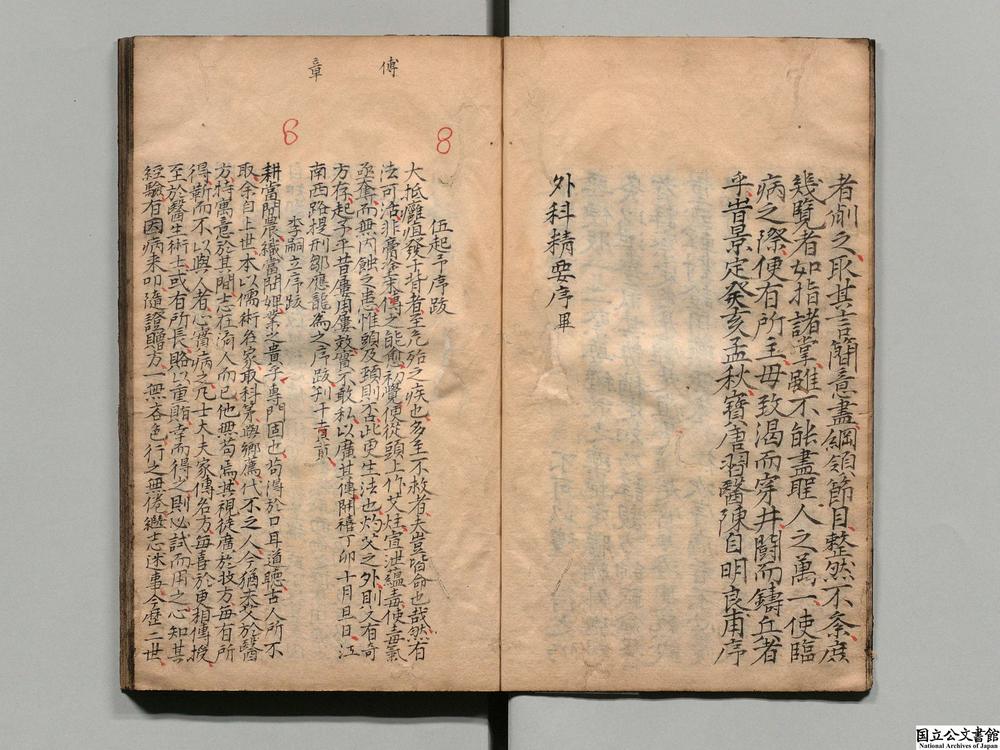 者削之取其言簡意盡綱領節目整然不紊庶
幾覽者如指諸掌雖不能盡聖人之萬一使臨
病之際便有所主毋致渴而穿井鬪而鑄兵者
乎旹景定癸亥孟秋寶唐習醫陳自明良甫序
外科精要序畢
傅
章
8
8
伍起予序跋
大抵癰疽發于背者至危殆之疾也多至不救者夫豈皆命也哉然有
法可活非膏
之能愈初覺便從頭上作艾炷宣泄蘊毒使毒氣
亟奪而無內蝕之患惟頭及頸則否此更生法也灼艾之外則又有奇
方存起予平昔屢用屢效實不敢私以廣其傳開禧丁卯十月旦日江
南西路提刑鄒應龍為之序跋刊于
李嗣立序跋
耕當問農織當問婢業之貴乎專門固也苟得於口耳道聽古人所不
取余自上世本以儒術名家取科第與鄉薦代不乏人今猶
於醫
方特寓意於其間志在濟人而已他無苟焉其視徒廣於技方每有所
得靳而不以與人者心實病之凡士大夫家傳名方每喜於更相傳授
至於醫生術士或有所長賂以重賄幸而得之則必試而用之心知其
經驗有因病来叩隨證贈方一無吝色行之無倦繼志述事今歷二世
国立公文書館
National Archives of Japan